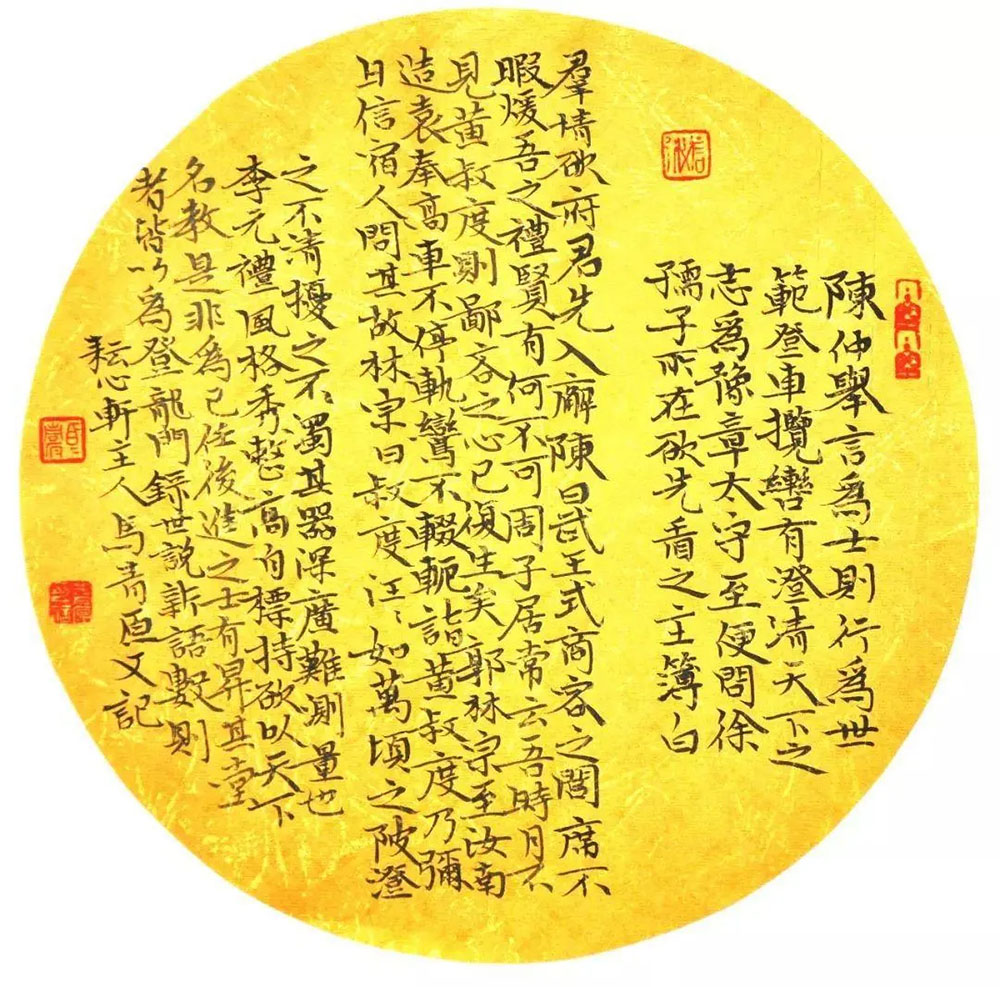 陳仲舉言為士則行為世
範登車攬轡有澄清天下之
志為豫章太守至便問徐
孺子所在欲先看之主簿白
羣情欲府君先入廨陳曰武王式商容之閭席不
暇煖吾之禮賢有何不可周子居常云吾時月不
見黃叔度則鄙吝之心已復生矣郭林宗至汝南
造袁奉高車不停軌鸞不輟軛詣黃叔度乃彌
日信宿人問其故林宗曰叔度汪、如萬頃之陂澄
之不清擾之不濁其器深廣難測量也
李元禮風格秀整高自標持欲以天下
名教是非為己任後進之士有昇其堂
者皆以為登龍門錄世說新語數則
耘心軒主人馬青